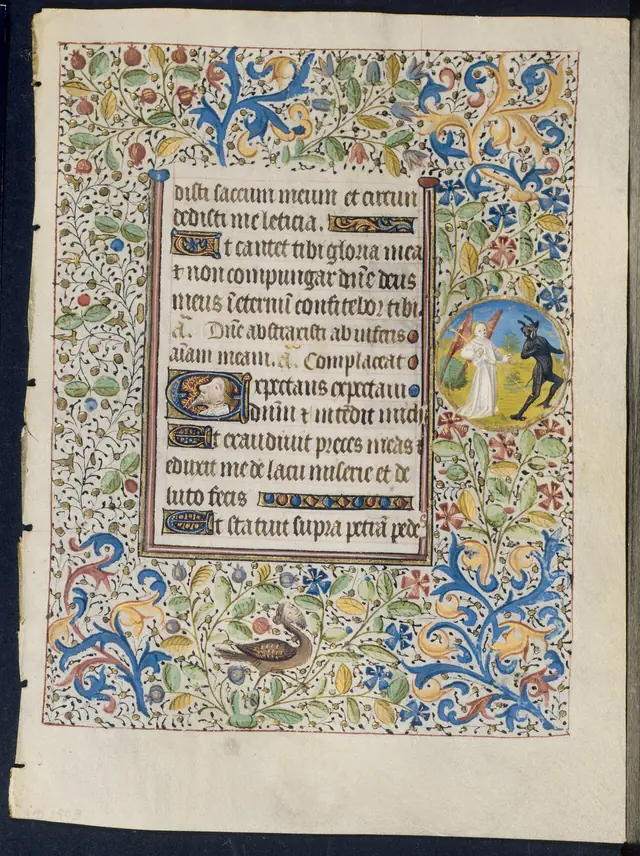 disti saccum meum et circun
dedisti me leticia.
Ut cantet tibi gloria mea
& non compungar dñe deus
meus ī eternū confitebor tibi.
a. Dñe abstraxisti ab inferis
aīam meam. a. Complaceat
Expectans expectavi
dñum & intēdit michi
Et exaudivit preces meas &
eduxit me de lacu miserie et de
luto fecis
Et statuit supra petrā pedes